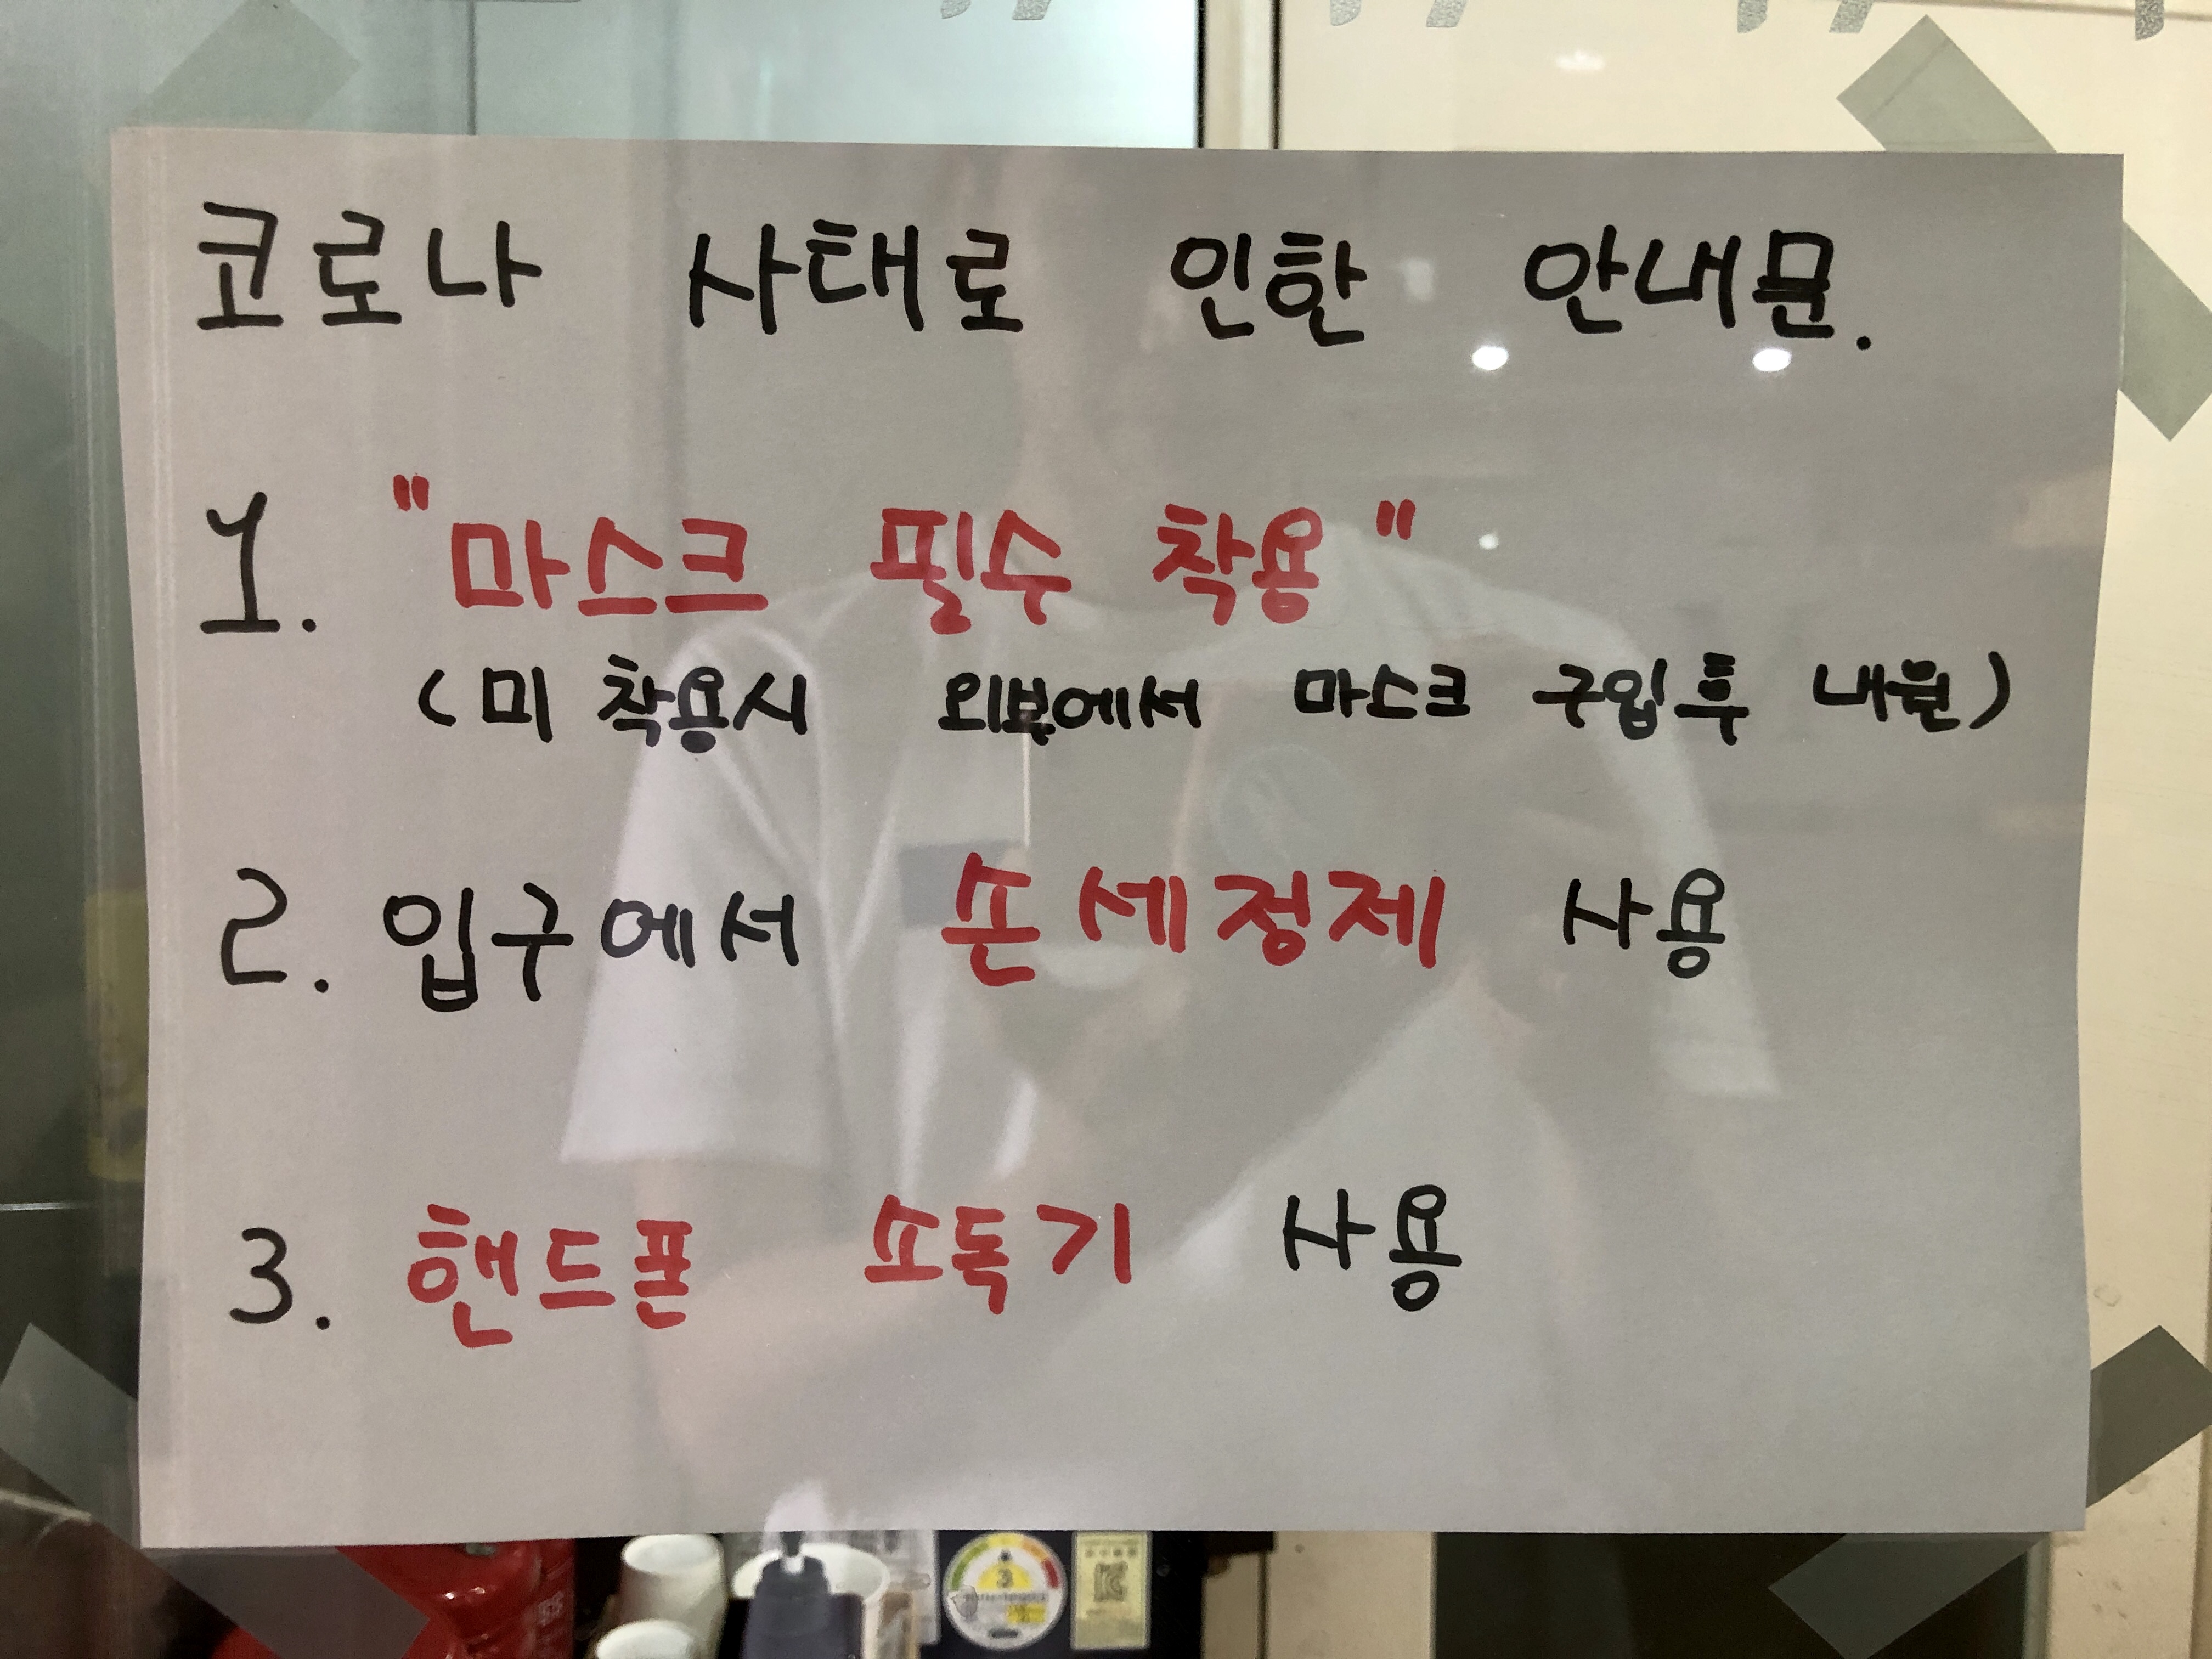 코로나 사태로 인한 안내문.
1. "마스크 필수 착용"
(미 착용시 외부에서 마스크 구입 후 내원)
2. 입구에서 손 세정제 사용
3. 핸드폰 소독기 사용
3